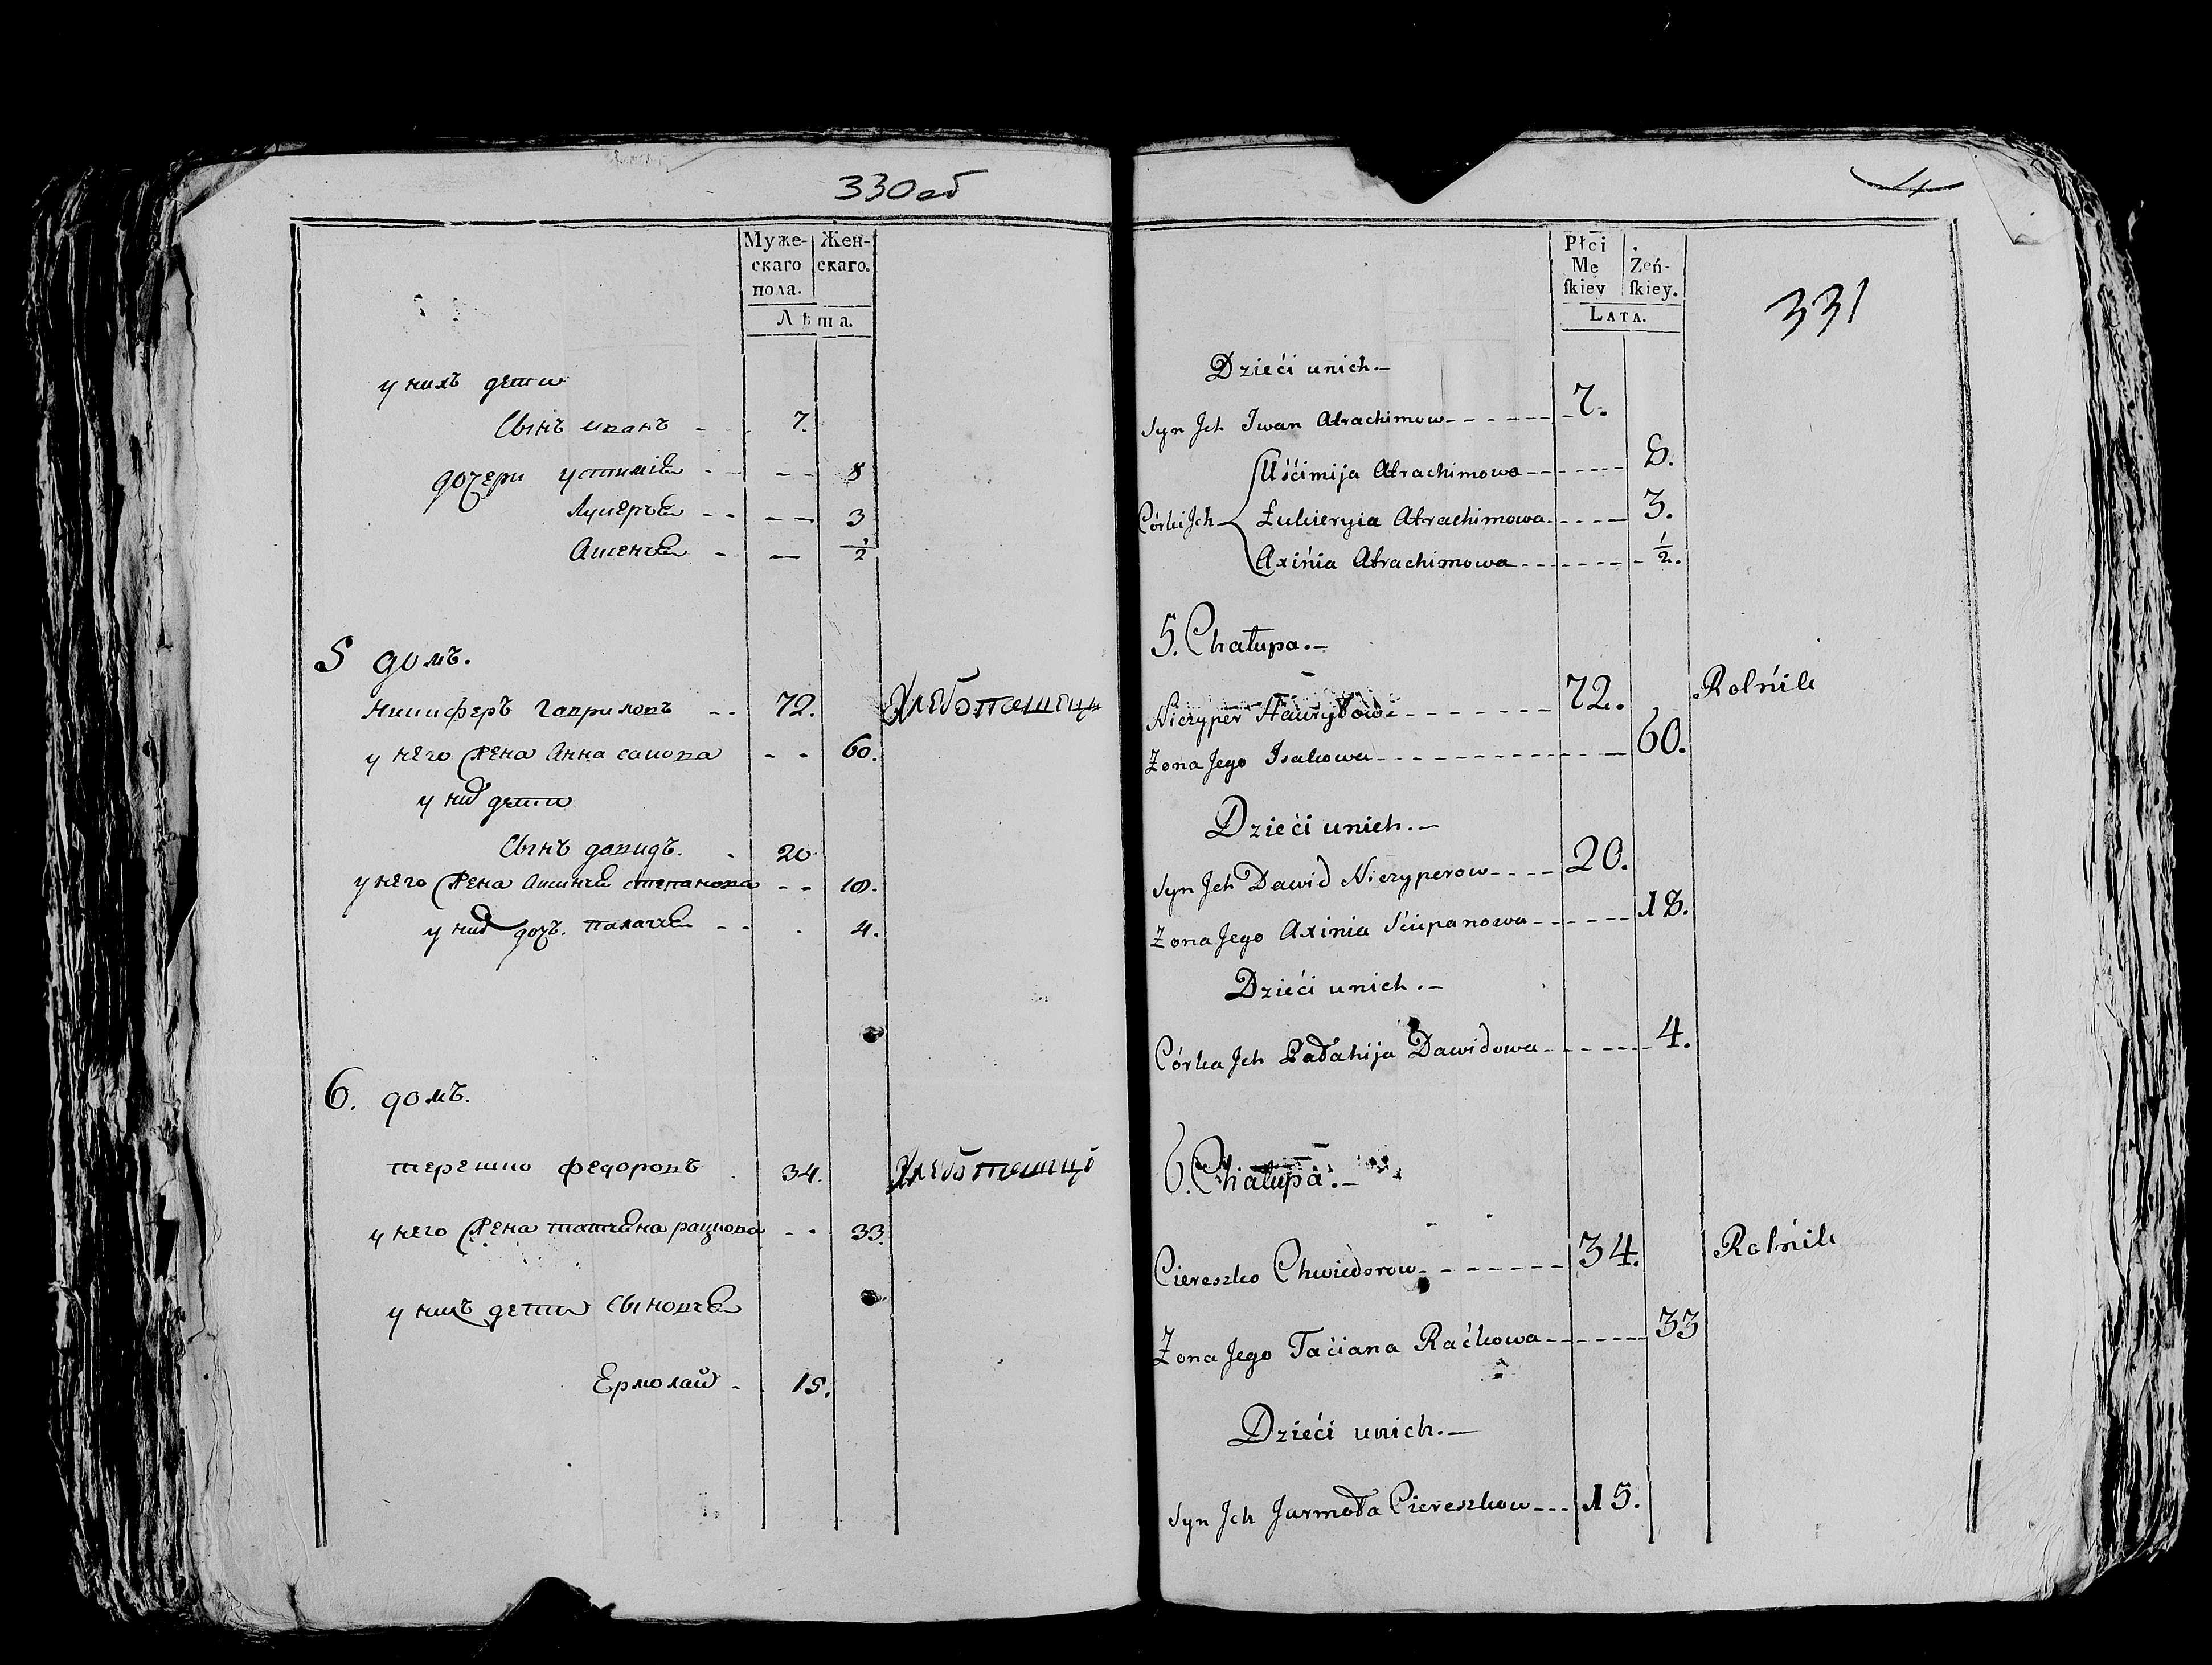 330об
Муже-
скаго
пола.
Жен-
скаго.
Лѣта.
у нихъ дети
Сынъ иванъ - - 7.
дочери устимія - - - - 8
лукерья - - - - 3
Аксенья - - 1/2
5 домъ.
никиферъ гавриловъ - - 72. Хлебопашецъ
у него жена Анна сакова - - 60.
у них дети
Сынъ давидъ. - 20
у него жена Аксинья степанова - - 18.
у них дочь. палагея - - - 4.
6. домъ.
терешко федоровъ . 34. Хлебопашецъ
у него жена татьяна рацкова - - 33.
у них дети Сыновья
Ермолай - 15.
4
331
Płci
Mę
skiey
Zeń-
skiey.
LATA.
Dzieći unich.—
Syn Jch Iwan Atrachimow - - - - - 7.
Uśćimija Atrachimowa - - - - - - 8.
Córki Jch Łukieryia Atrachimowa - - - - - 3.
Axińia Atrachimowa - - - - - - - 1/2.
5. Chałupa.—
Niczyper Hauryłow - - - - - - - 72. Rolńik
Żona Jego Isakowa - - - - - - - - - - 60.
Dzieći unich.—
Syn Jch Dawid Niczyperow - - - - 20.
Żona Jego Axinia Sćiepanowa - - - - - - 18.
Dzieći unich.—
Córka Jch Pałahija Dawidowa - - - - - - 4.
6. Chałupa.—
Ciereszko Chwiedorow - - - - - - - 34. Rolńik
Żona Jego Taćiana Raćkowa - - - - - - 33
Dzieći unich.—
Syn Jch Jarmoła Ciereszkow - - - 15.